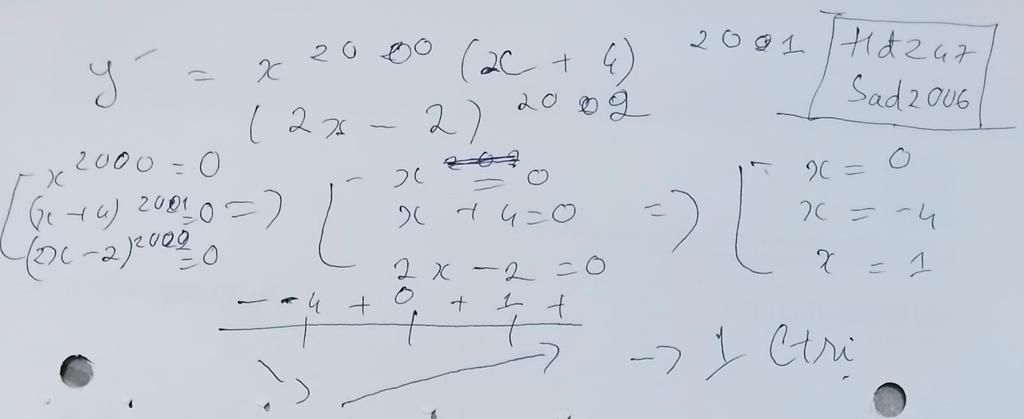 y' = x^2000 (x + 4)^2001
(2x - 2)^2002
Htz47
Sad2006
[ x^2000 = 0
(x + 4)^2001 = 0 =>
(2x - 2)^2002 = 0
[ x = 0
x + 4 = 0 =>
2x - 2 = 0
[ x = 0
x = -4
x = 1
- -4 + 0 + 1 +
-> 1 Ctri